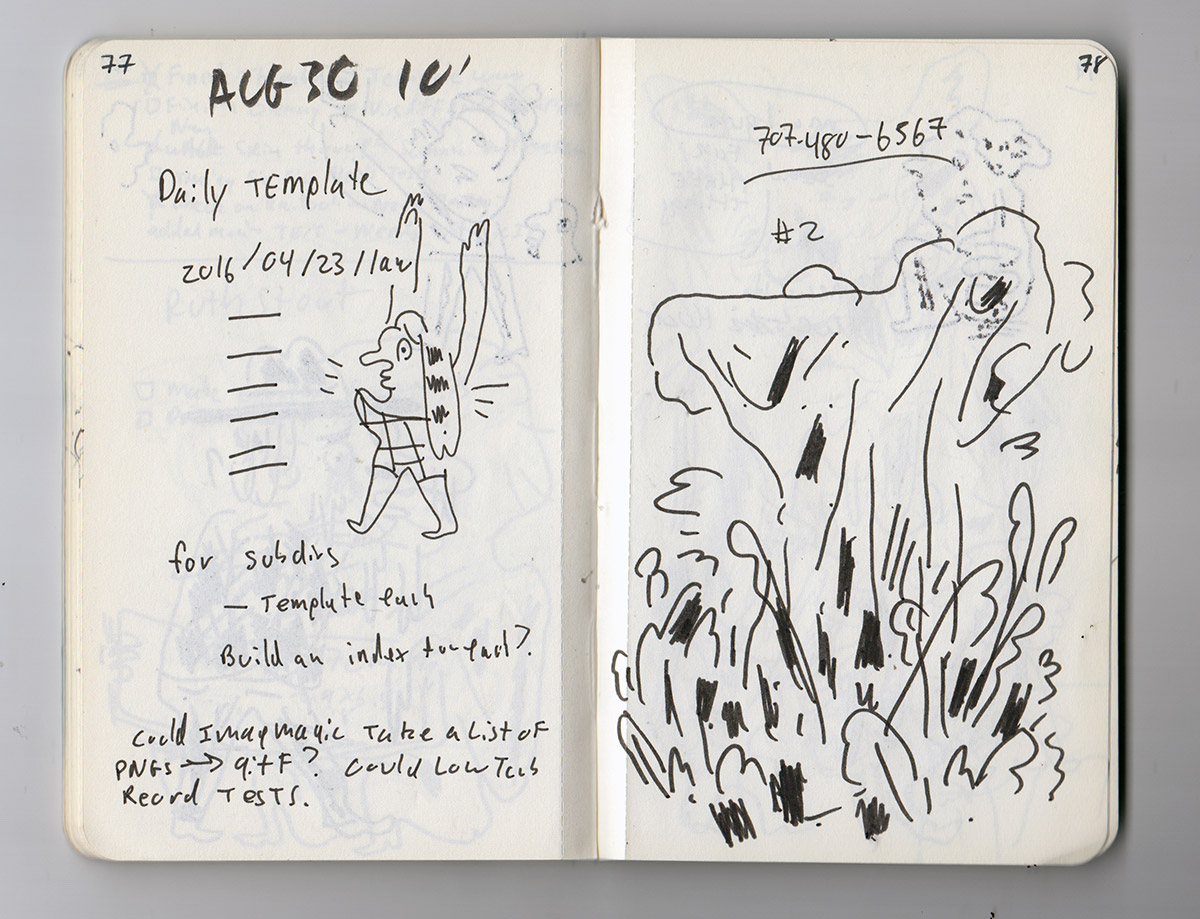 77
AUG 30 10'
Daily Template
2016/04/23/
for subdirs
— Template each
Build an index for each?
Could Imagmagic Take a List of
PNGs → gif? Could Low Tech
Record Tests.
78
707-480-6567
#2